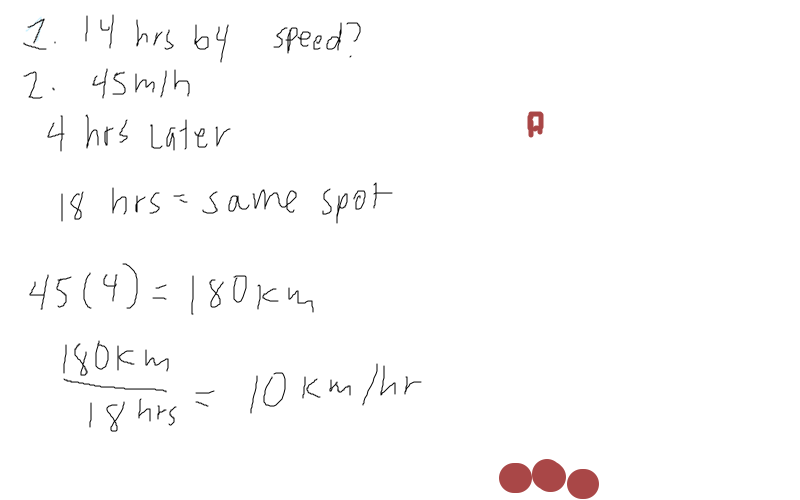 1. 14 hrs by speed?
2. 45m/h
4 hrs Later
18 hrs = same spot
45(4) = 180km
180km
18 hrs = 10 km/hr
A